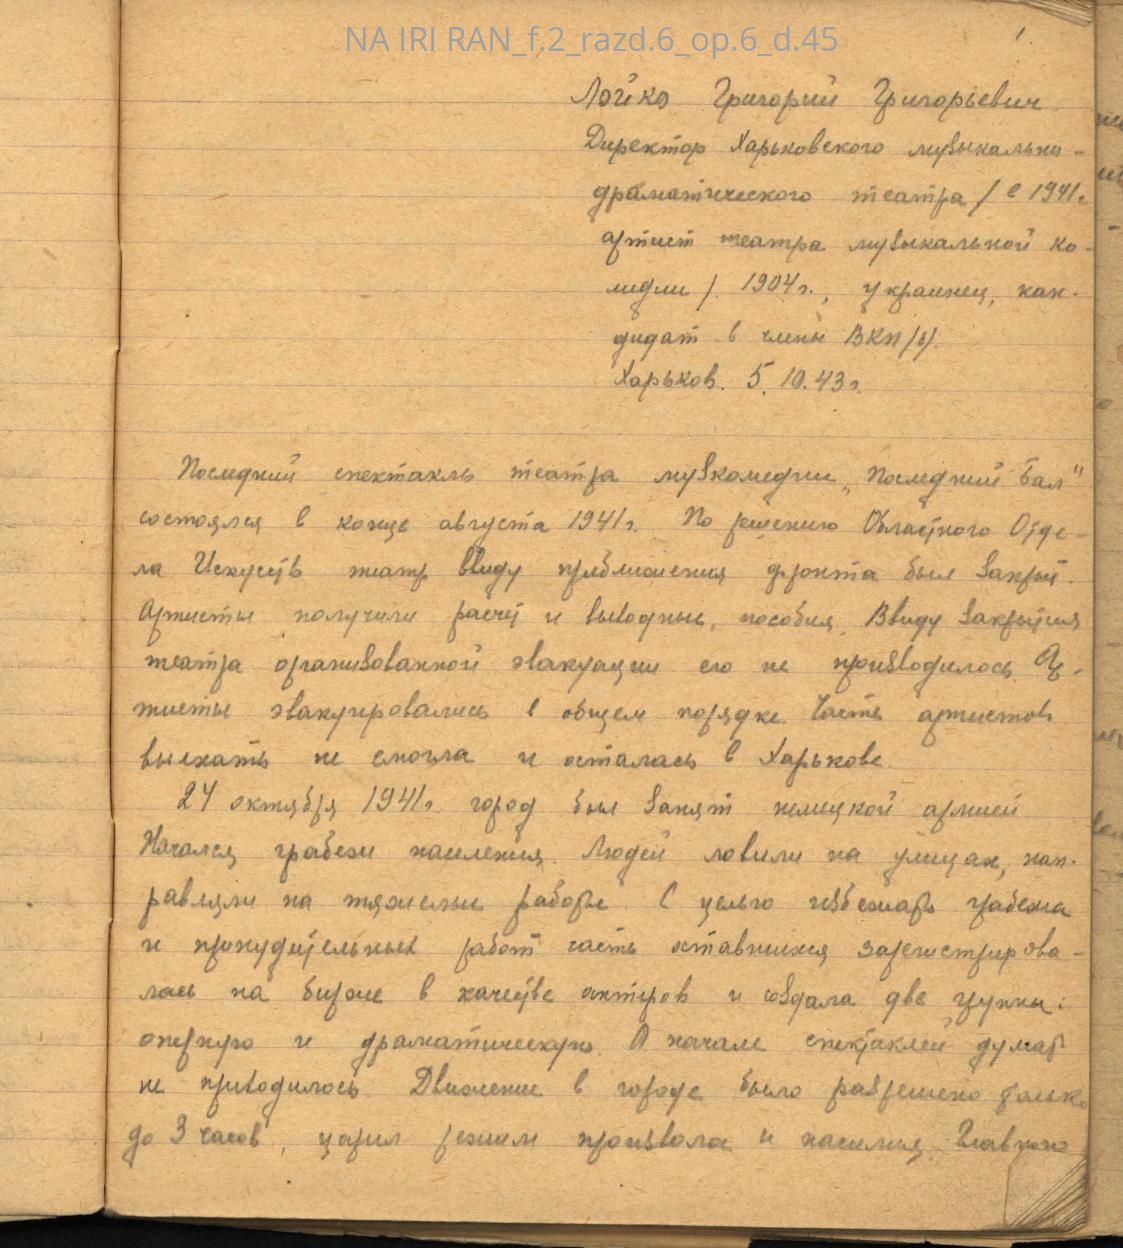 NA IRI RAN_f.2_razd.6_op.6_d.45
1
Лойко Григорий Григорьевич
Директор Харьковского музыкально-
драматического театра /в 1941г.
артист театра музыкальной ко-
медии/. 1904г., украинец, кан-
дидат в члены ВКП/б/.
Харьков. 5.10.43г.
Последний спектакль театра музкомедии „Последний бал"
состоялся в конце августа 1941г. По решению Областного Отде-
ла Искусств театр ввиду приближения фронта был закрыт.
Артисты получили расчет и выходные пособия. Ввиду закрытия
театра организованной эвакуации его не производилось. Ар-
тисты эвакуировались в общем порядке. Часть артистов
выехать не смогла и осталась в Харькове.
24 октября 1941г. город был занят немецкой армией.
Начался грабеж населения. Людей ловили на улицах, нап-
равляли на тяжелые работы. С целью избежать грабежа
и принудительных работ часть оставшихся зарегистрирова-
лась на бирже в качестве актеров и создала две группы:
оперную и драматическую. О начале спектаклей думать
не приходилось. Движение в городе было разрешено только
до 3 часов, царил режим произвола и насилия. Главною